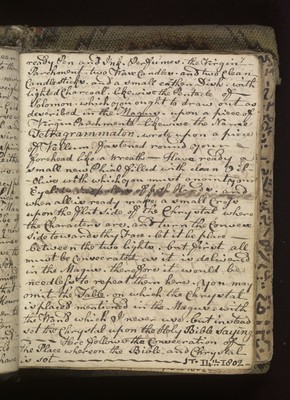 ready Pen and Ink. Perfumes. the Virgin
Parchment, two Wax Candles, and two clean
Candlesticks, and a small earthen Dish with
lighted Charcoal, likewise the Pentacle of
Solomon, which you ought to draw out as
described in the Magus, upon a piece of
Virgin Parchment. likewise the Name
Tetragrammaton, wrote upon a piece
of Vellum fastened round your
forehead like a wreath Have ready a
small new Phial filled with clean Oil
Olive with which you must anoint
Eyelids of both Hands, and
when all is ready make a small Cross
upon the flat side of the Chrystal where
the Characters are, and turn the Convex
side towards the
between the two lights, but first all
must be Consecrated as it is delivered
in the Magus therefore it would be
needless to repeat them here. You may
omit the Table, on which the Chrystal
is placed mentioned in the Magus, with
the Wand which I never use, but instead
set the Chrystal upon the Holy Bible Saying
Here follows the Consecration of
the Place whereon the Bible and Chrystal
is set